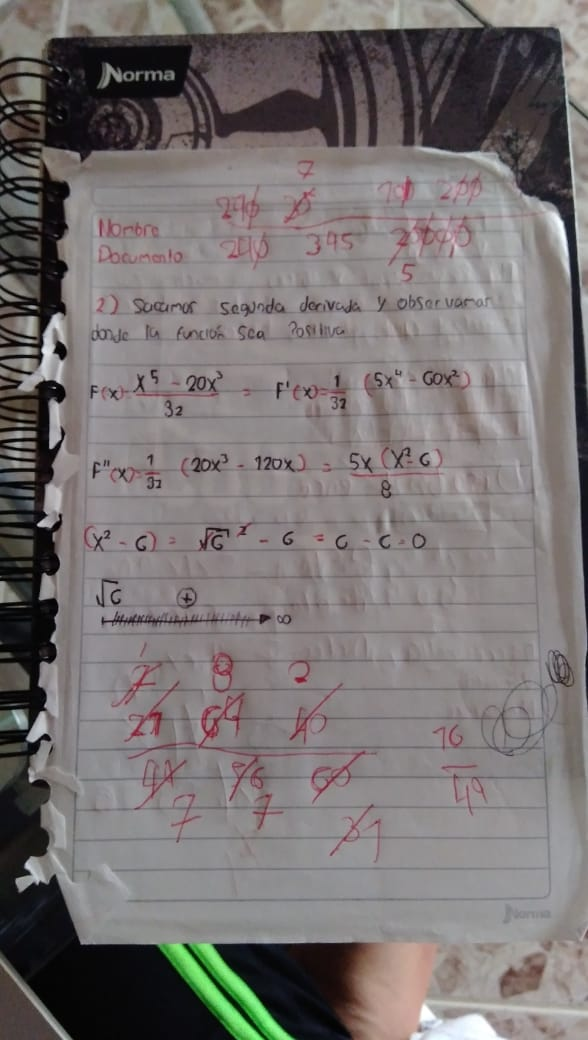 Norma
7
Nombre
Documento
395
5
2) Sacamos segunda derivada y observamos
donde la función sea Positiva
F(x)= x⁵ - 20x³ / 32 = F'(x)= 1/32 (5x⁴ - 60x²)
F''(x)= 1/32 (20x³ - 120x) = 5x (x² - 6) / 8
(x² - 6) = √6² - 6 = 6 - 6 = 0
√6 ⊕ ∞
1 8 2
7
21 64 40
7 7
16
49
Norma